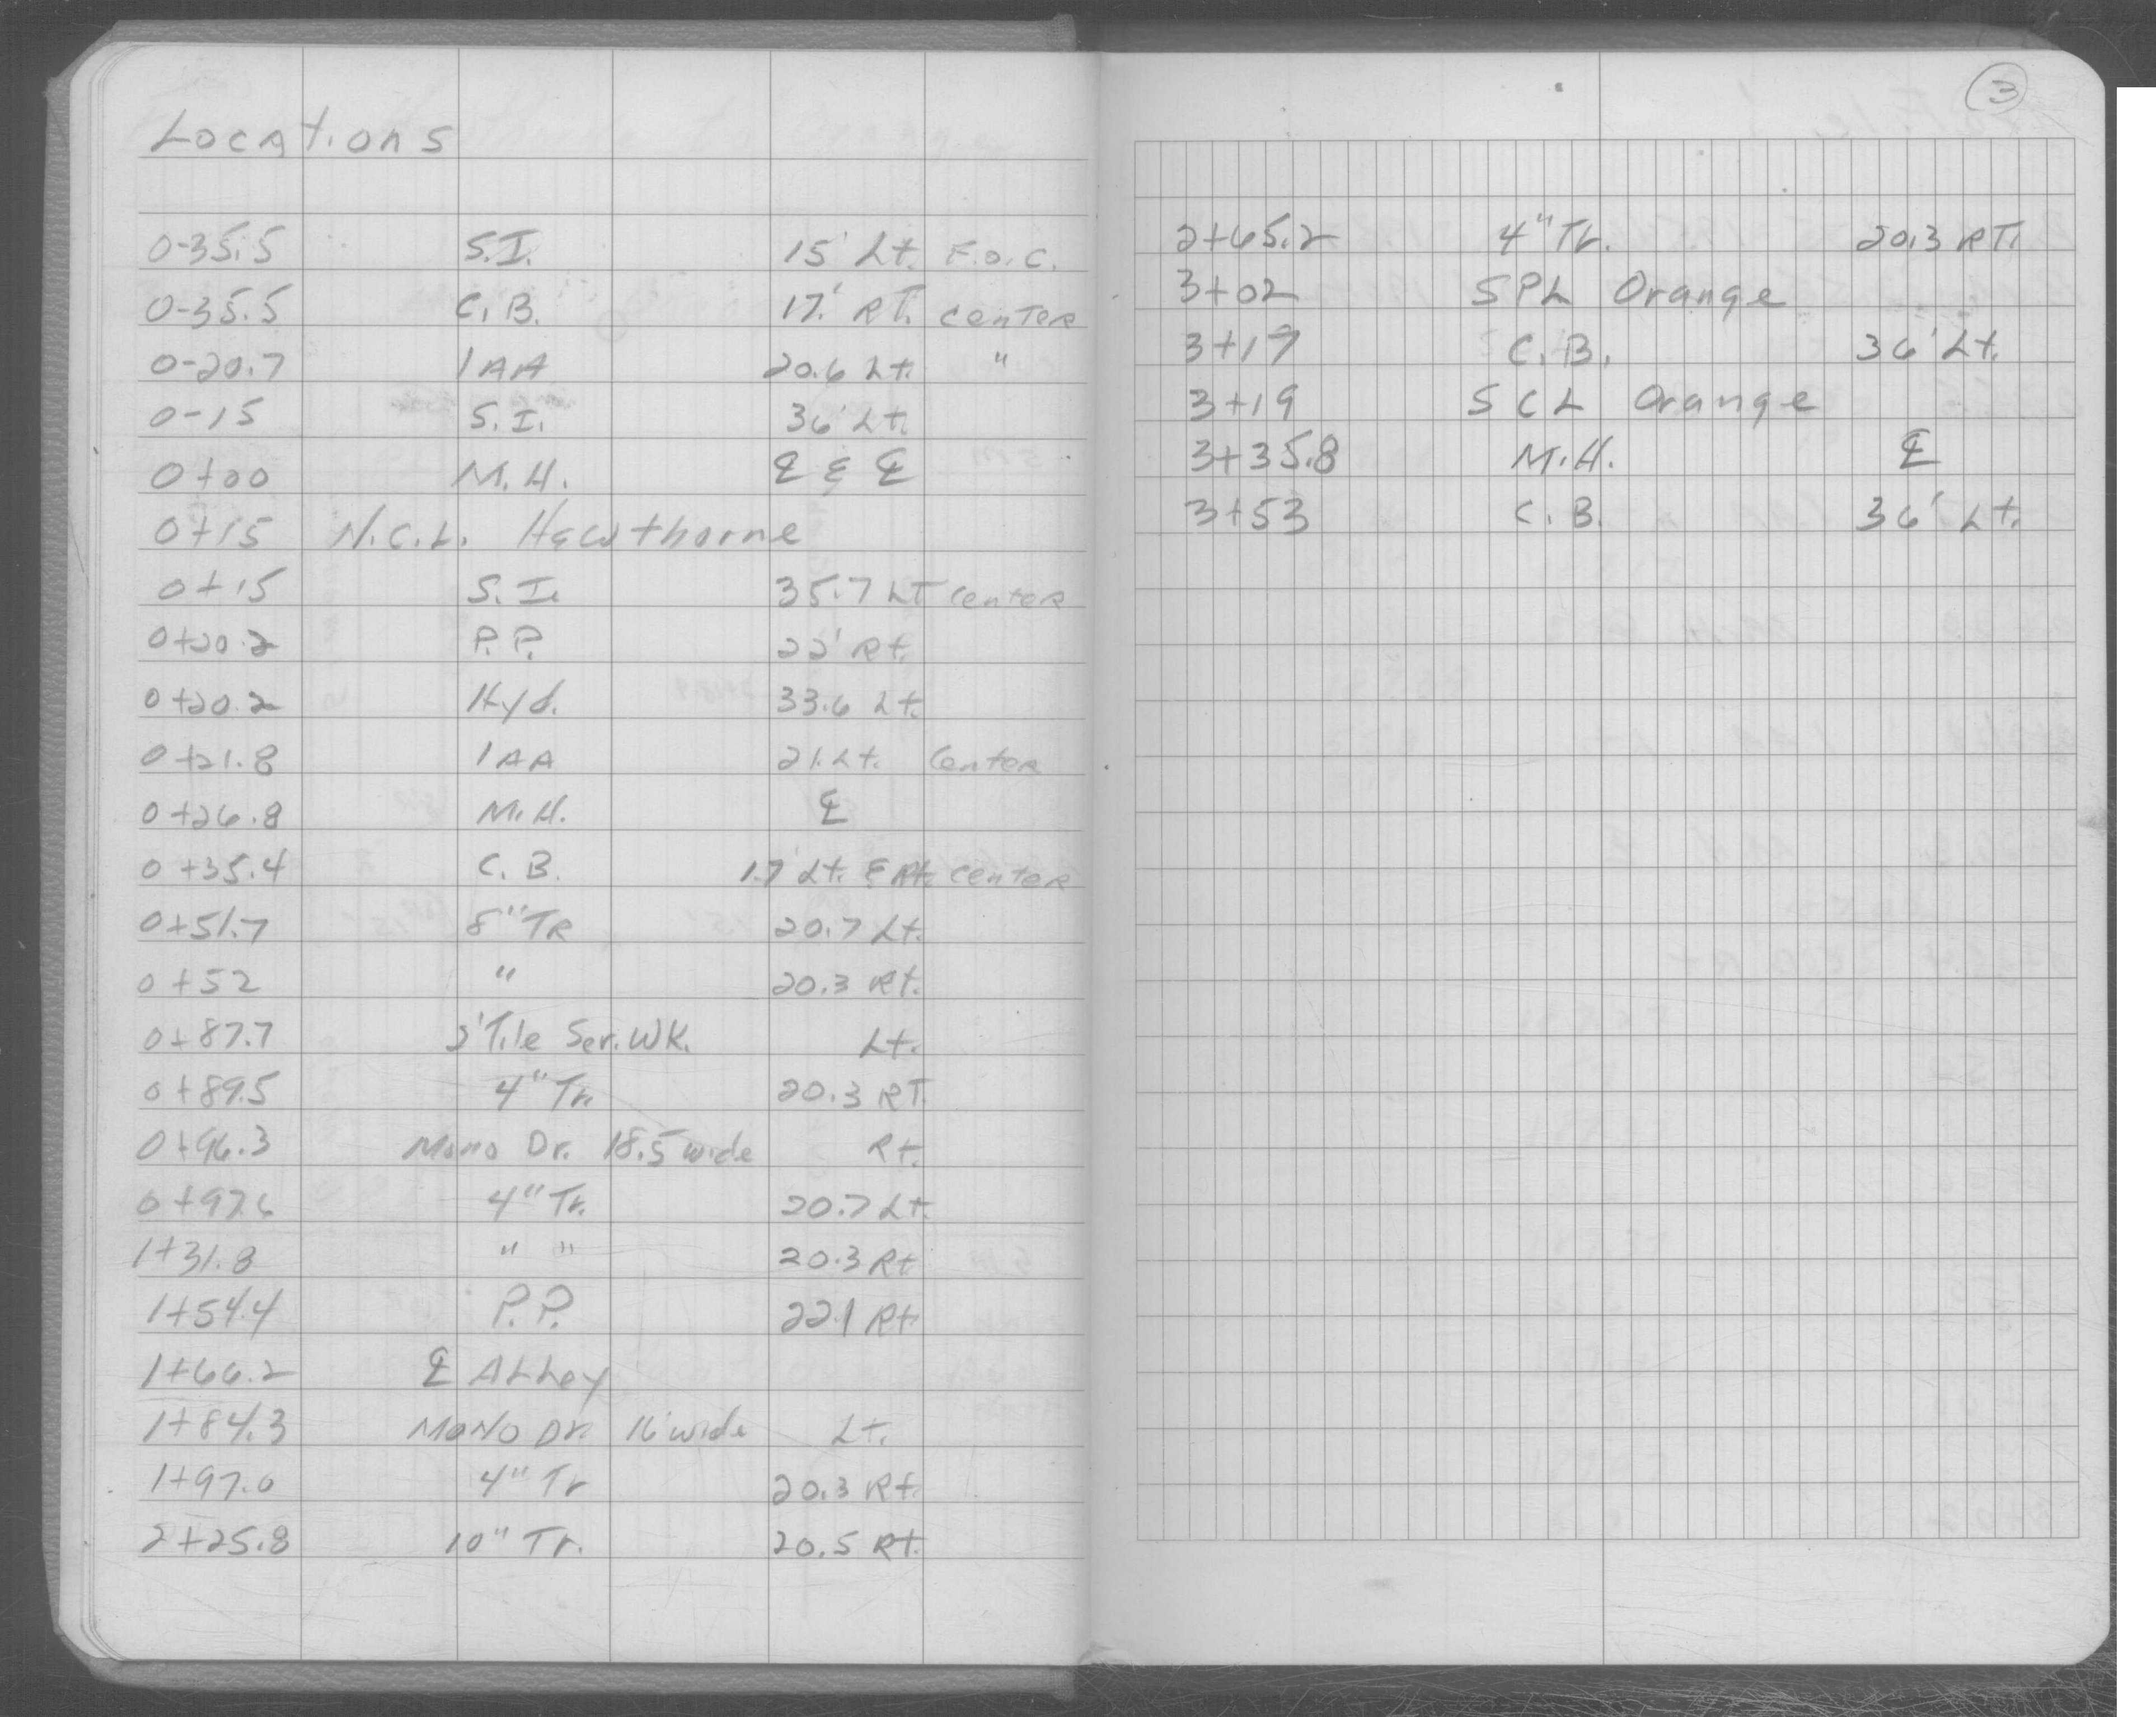 Locations
0-35.5 S.I. 15' Lt. F.O.C.
0-35.5 C.B. 17' RT. center
0-20.7 1AA 20.6 Lt. "
0-15 S.I. 36' Lt.
0+00 M.H. ℄ & ℄
0+15 N.C.L. Hawthorne
0+15 S.I. 35.7 LT center
0+20.2 P.P. 22' Rt.
0+20.2 Hyd. 33.6 Lt.
0+21.8 1AA 21. Lt. Center
0+26.8 M.H. ℄
0+35.4 C.B. 17' Lt. & Rt. center
0+51.7 8" TR 20.7 Lt.
0+52 " 20.3 Rt.
0+87.7 2' Tile Ser. WK. Lt.
0+89.5 4" Tr. 20.3 RT.
0+96.3 Mono Dr. 18.5 wide Rt.
0+97.6 4" Tr. 20.7 Lt.
1+31.8 " " 20.3 Rt
1+54.4 P.P. 22.1 Rt
1+66.2 ℄ ALLey
1+84.3 MoNo Dr. 16' wide Lt.
1+97.0 4" Tr 20.3 Rt.
2+25.8 10" Tr. 20.5 Rt.
3
2+65.2 4" Tr. 20.3 RT.
3+02 SPL Orange
3+17 C.B. 36' Lt.
3+19 SCL Orange
3+35.8 M.H. ℄
3+53 C.B. 36' Lt.